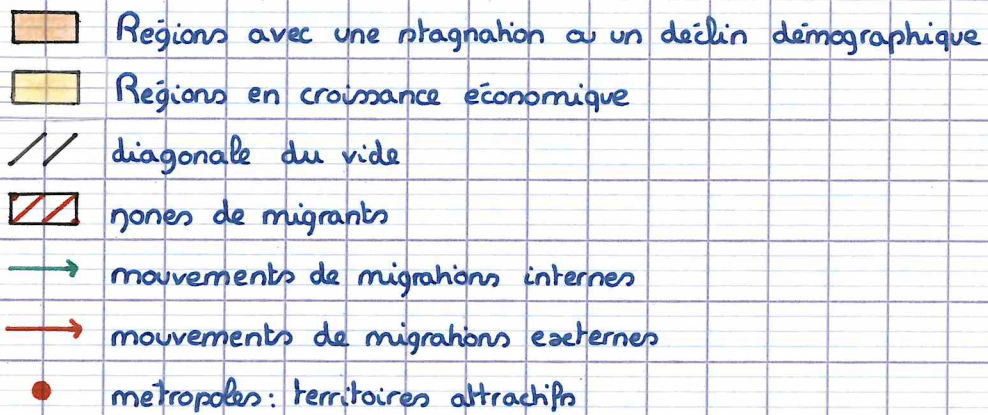 Régions avec une stagnation ou un déclin démographique
Régions en croissance économique
diagonale du vide
zones de migrants
mouvements de migrations internes
mouvements de migrations externes
métropoles : territoires attractifs